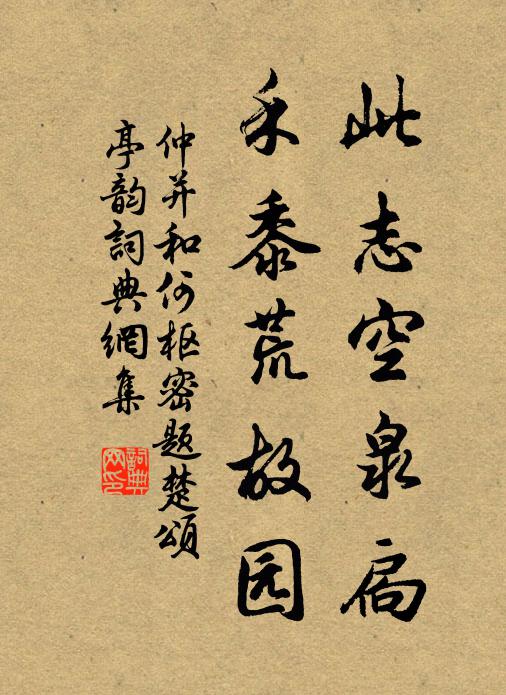 此志空泉扃
禾黍荒故园
仲并和何枢密题楚颂
亭韵詞典網集
詞典
网印